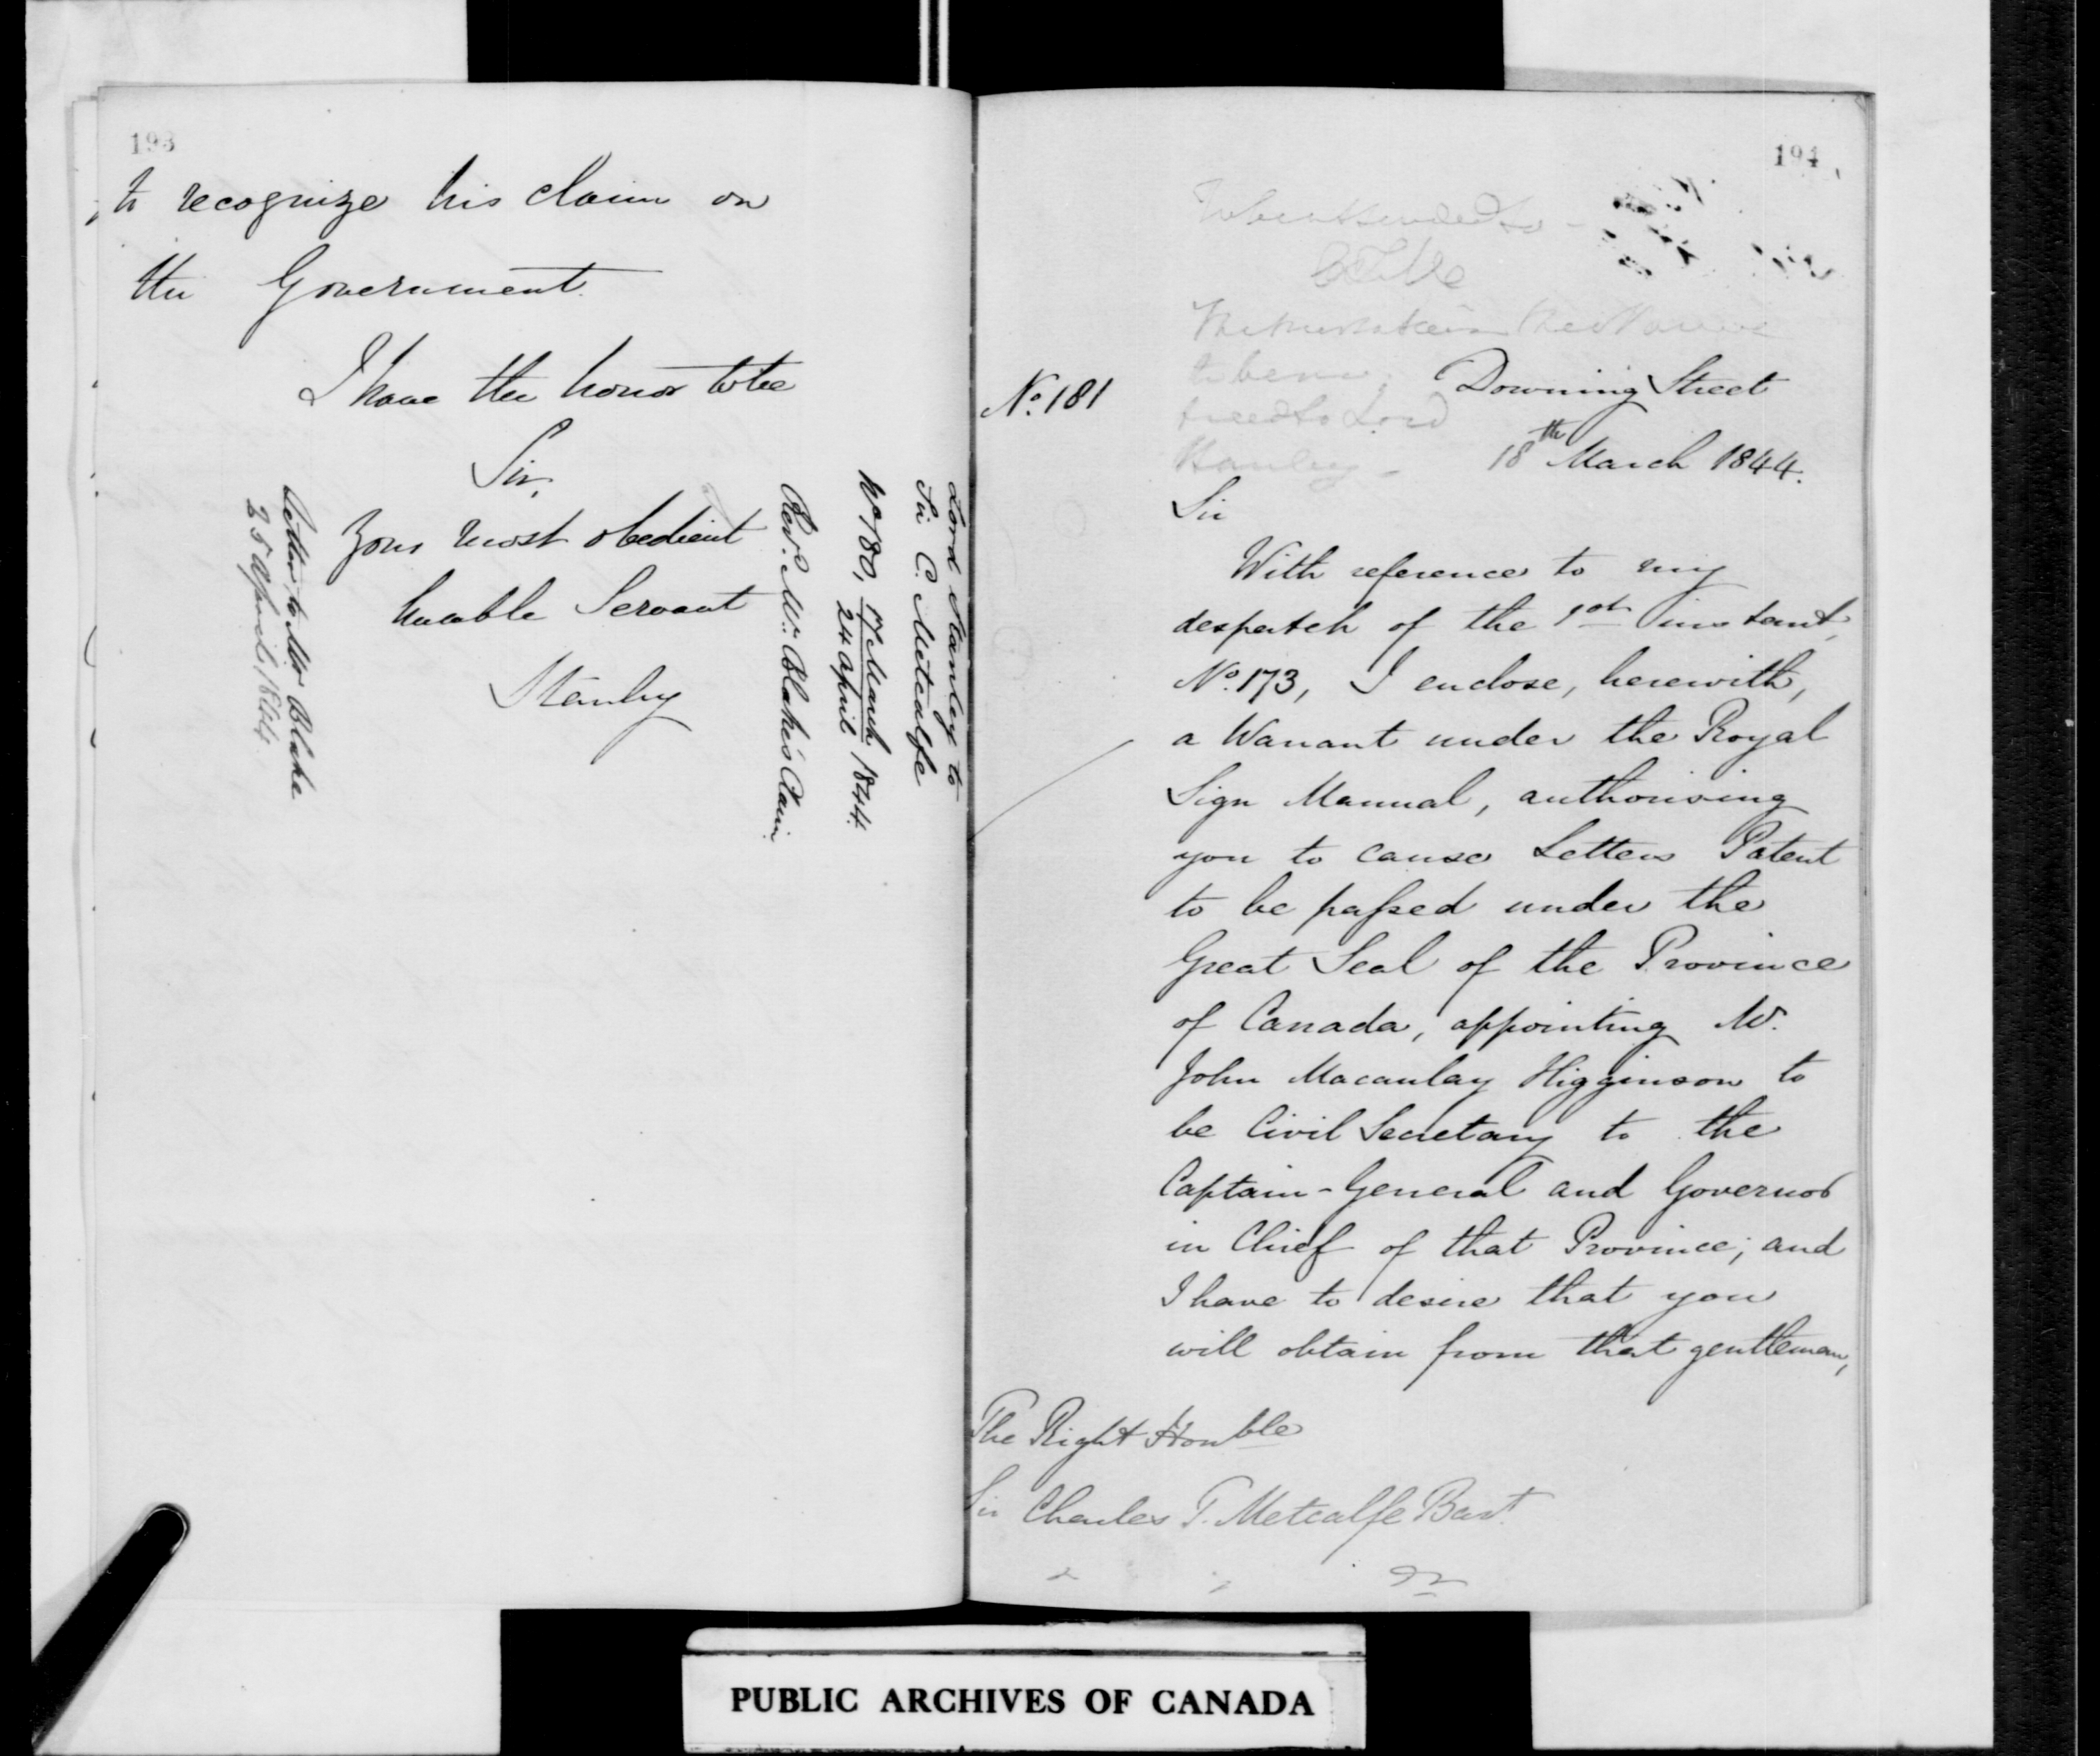 193
to recognize his claim on
the Government.
I have the honor to be
Sir,
Your most obedient
humble Servant
Stanley
Lord Stanley to
Sir C. Metcalfe
No 180, 17 March 1844.
24 April
Revd. Mr. Blake's Claim
Letter to Mr Blake
25 April 1844
194
To be attended to
CTM
to Lord
Stanley
No. 181
Downing Street
18th March 1844.
Sir
With reference to my
despatch of the 1st instant,
No. 173, I enclose, herewith,
a Warrant under the Royal
Sign Manual, authorising
you to cause Letters Patent
to be passed under the
Great Seal of the Province
of Canada, appointing Mr.
John Macaulay Higginson to
be Civil Secretary to the
Captain-General and Governor
in Chief of that Province; and
I have to desire that you
will obtain from that gentleman,
The Right Honble
Sir Charles T. Metcalfe Bart.
PUBLIC ARCHIVES OF CANADA